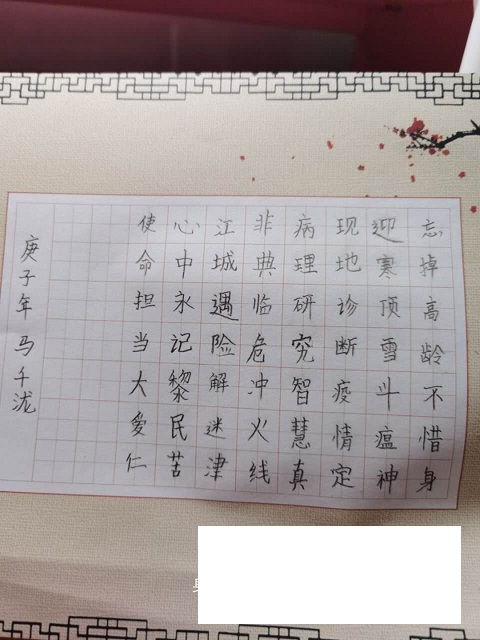 忘掉高龄不惜身
迎寒顶雪斗瘟神
现地诊断疫情定
病理研究智慧真
非典临危冲火线
江城遇险解迷津
心中永记黎民苦
使命担当大爱仁
庚子年马千泷